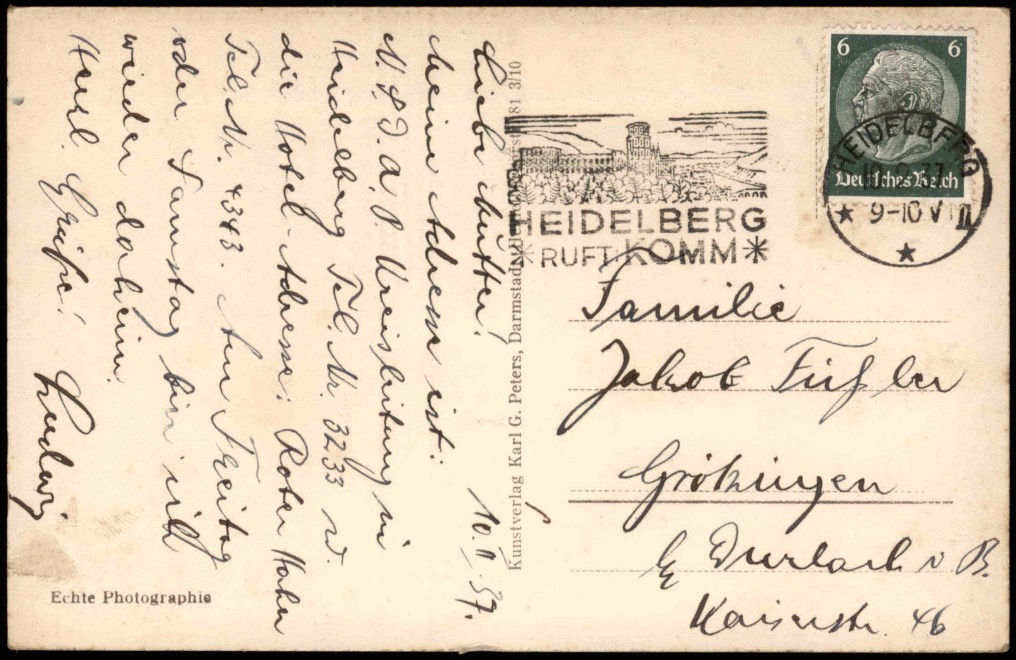 Liebe Mutter! 10.II.37.
Meine Adresse ist:
N.S.D.A.P. Kreisleitung in
Heidelberg Tel. Nr. 3233 u.
die Hotel-Adresse: Roter Hahn
Tel. Nr. 4343. Am Freitag
oder Samstag bin ich
wieder daheim.
Herzl. Grüße!
Ludwig
Echte Photographie
Kunstverlag Karl G. Peters, Darmstadt 81 3/10
6 6
Deutsches Reich
HEIDELBERG
9-10 V
II
HEIDELBERG
RUFT: KOMM
Familie
Jakob Füßler
Grötzingen
Durlach i B.
Kaiserstr. 46